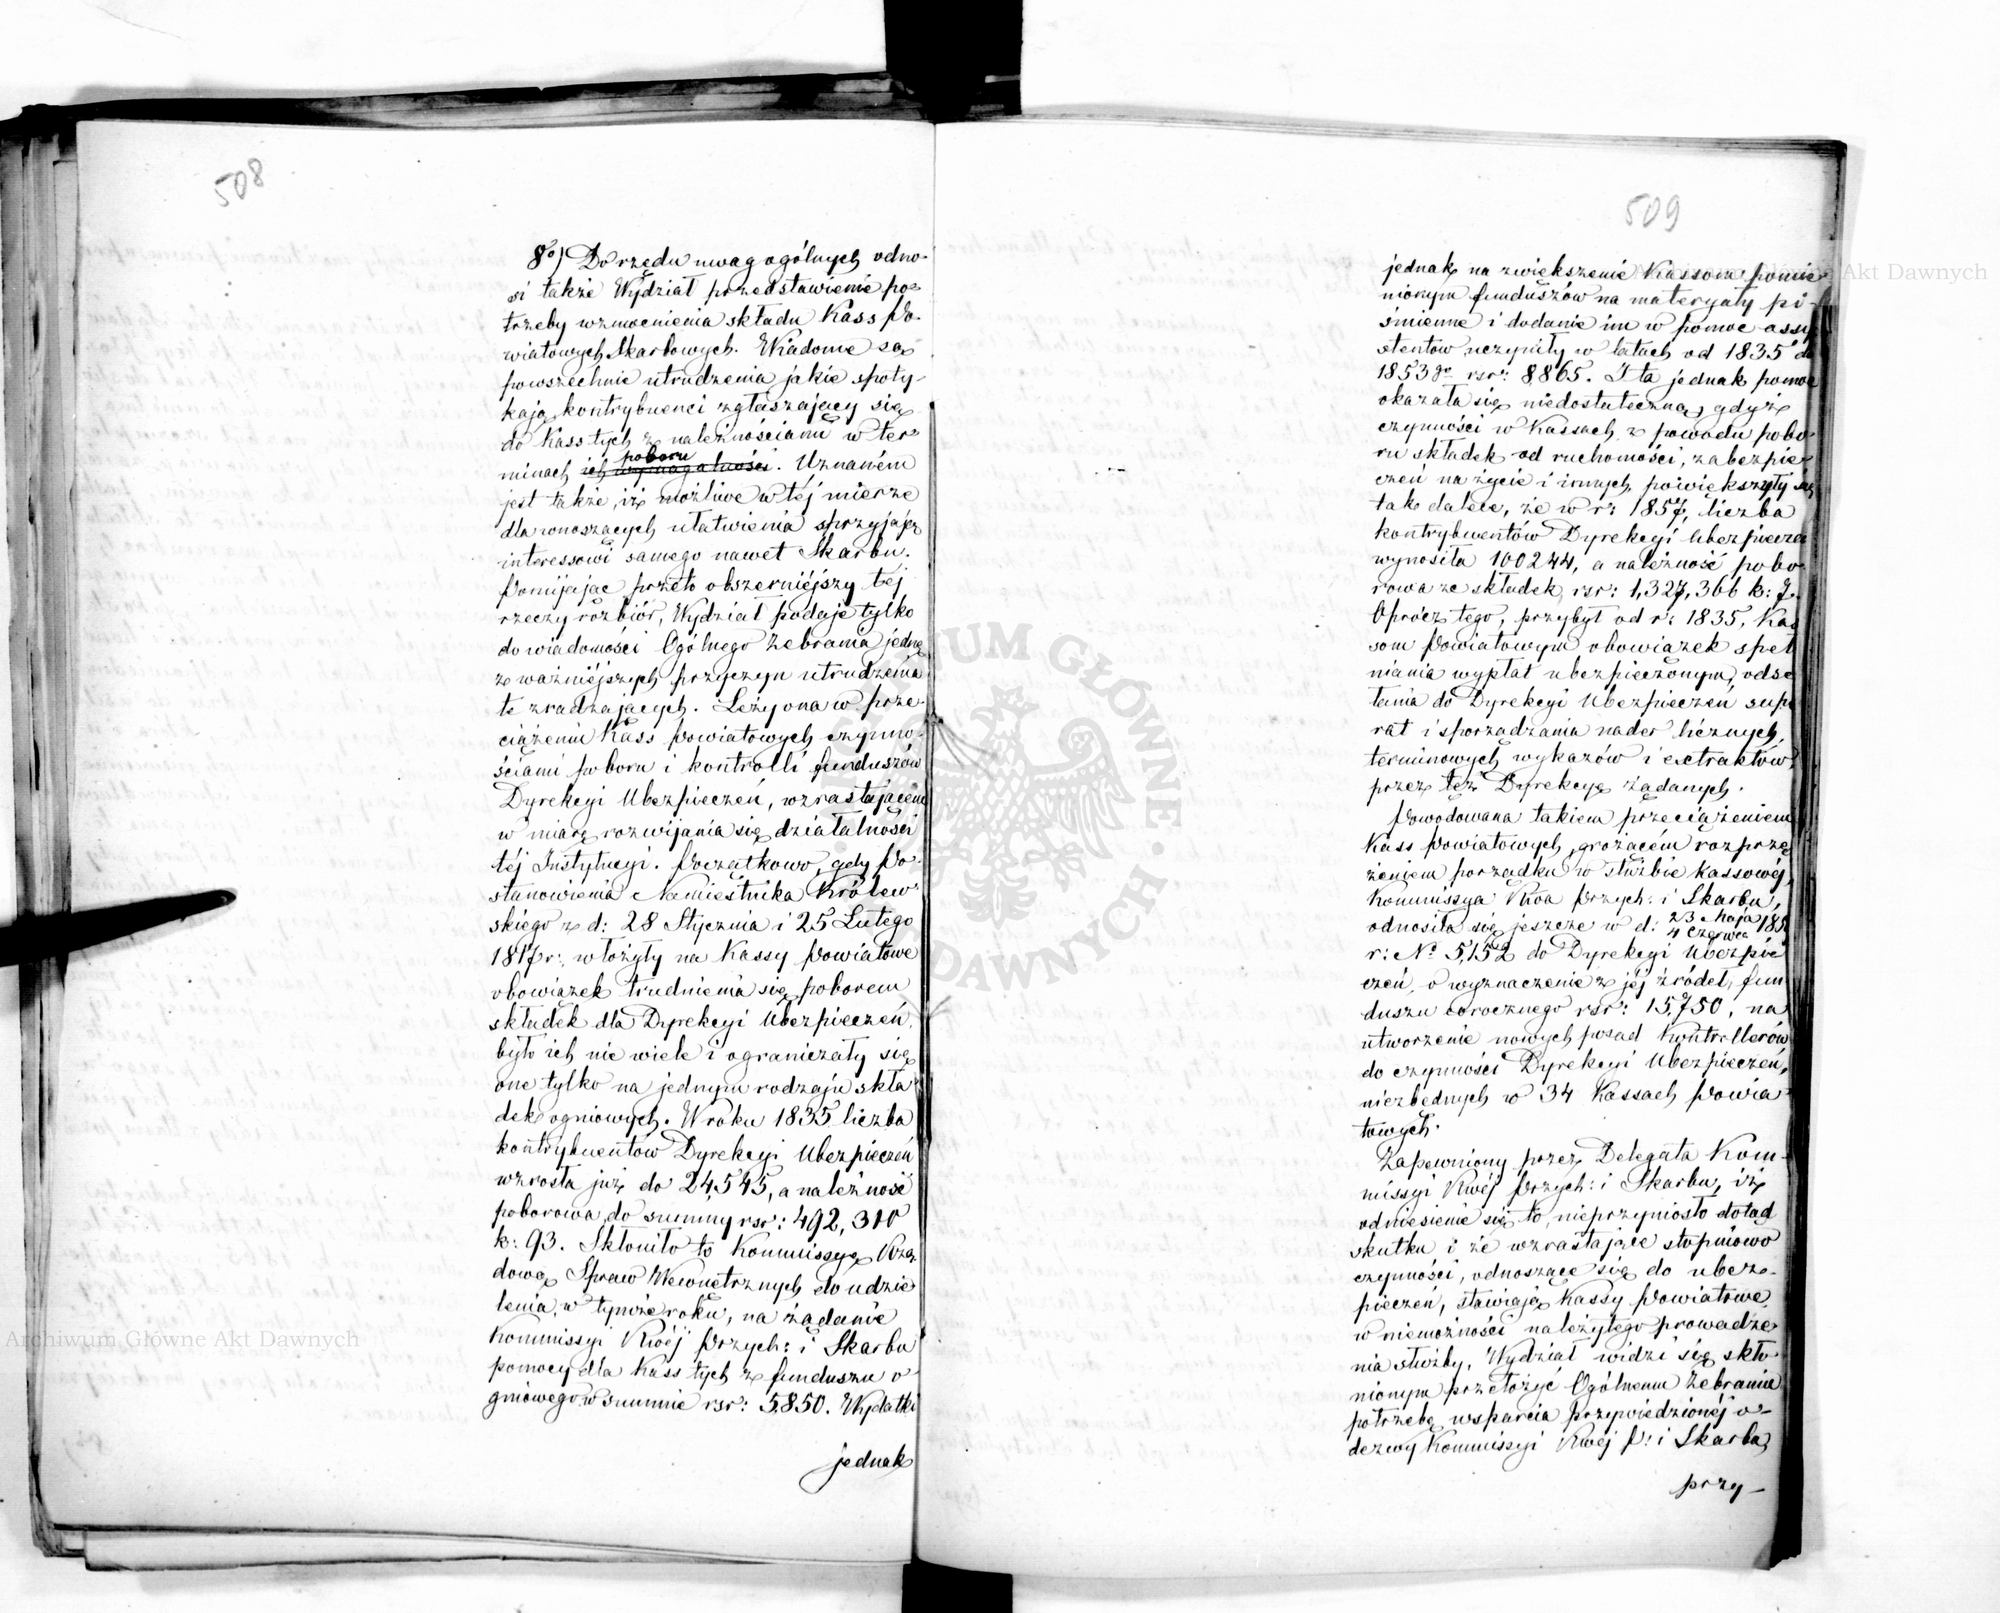 508
8o) Do rzędu uwag ogólnych odno-
si także Wydział przedstawienie po-
trzeby wzmocnienia składu Kass Po-
wiatowych Skarbowych. Wiadome są
powszechnie utrudzenia jakie spoty-
kają kontrybuenci zgłaszający się
do Kass tych z należnościami w ter-
poboru
minach ich wymagalności. Uznaném
jest także, iż możliwe w téj mierze
dla wnoszących ułatwienia sprzyjają
interessowi samego nawet Skarbu.
Pomijając przeto obszerniéjszy téj
rzeczy rozbiór, Wydział podaje tylko
do wiadomości Ogólnego Zebrania jedną
z ważniéjszych przyczyn utrudzenia
te zradzających. Leży ona w prze-
ciążeniu Kass Powiatowych czynno-
ściami poboru i kontrolli funduszów
Dyrekcyi Ubezpieczeń, wzrastającém
w miarę rozwijania się działalności
téj Instytucyi. Początkowo, gdy Po-
stanowienia Namiestnika Królew-
skiego z d: 28 Stycznia i 25 Lutego
1817 r:, włożyły na Kassy Powiatowe
obowiązek trudnienia się poborem
składek dla Dyrekcyi Ubezpieczeń,
było ich nie wiele i ograniczały się
one tylko na jednym rodzaju skła-
dek ogniowych. W roku 1835 liczba
kontrybuentów Dyrekcyi Ubezpieczeń
wzrosła już do 24,545, a należność
poborowa do summy rsr: 492,310
k: 93. Skłoniło to Kommissyę Rzą-
dową Spraw Wewnętrznych do udzie-
lenia, w tymże roku, na żądanie
Kommissyi Rwéj Przych: i Skarbu
pomocy dla Kass tych z funduszu o-
gniowego w summie rsr: 5850. Wydatki
jednak
509
jednak na zwiększenie Kassom pomie-
nionym funduszów na materyały pi-
śmienne i dodanie im w pomoc assy-
stentów uczyniły w latach od 1835 do
1853 go rsr: 8,865. I ta jednak pomoc
okazała się niedostateczną, gdyż
czynności w Kassach z powodu pobo-
ru składek od ruchomości, zabezpie-
czeń na życie i innych, powiększyły się
tak dalece, że w r: 1857, liczba
kontrybuentów Dyrekcyi Ubezpiecze
wynosiła 100244, a należność pobo-
rowa ze składek, rsr: 1,327,366 k: 7.
Oprócz tego, przybył od r: 1835, Kas
som Powiatowym obowiązek speł
niania wypłat ubezpieczonym, odse
łania do Dyrekcyi Ubezpieczeń supe
rat i sporządzania nader licznych,
terminowych wykazów i extraktów
przez też Dyrekcyę żądanych.
Powodowana takiem przeciążeniem
Kass Powiatowych, grożącém rozprzę
żeniem porządku w służbie kassowéj,
Kommissya Rwa Przych: i Skarbu,
odnosiła się jeszcze w d: 23 Maja 185
4 Czerwca
r: No 5,152 do Dyrekcyi Ubezpie
czeń, o wyznaczenie z jéj źródeł, fun
duszu corocznego rsr: 15,750, na
utworzenie nowych posad Kontrollerów
do czynności Dyrekcyi Ubezpieczeń,
niezbędnych w 34 Kassach Powia-
towych.
Zapewniony przez Delegata Kom-
missyi Rwéj Przych: i Skarbu, iż
odniesienie się to, nieprzyniosło dotąd
skutku i że wzrastające stopniowo
czynności, odnoszące się do ubez-
pieczeń, stawiają Kassy Powiatowe,
w niemożności należytego prowadze-
nia służby, Wydział widzi się skło-
nionym przełożyć Ogólnemu Zebraniu
potrzebę wsparcia przywiedzionéj o-
dezwy Kommissyi Rwéj P: i Skarbu,
przy-